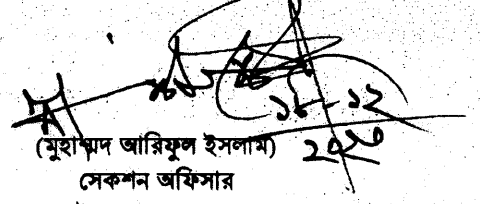 ১৮-১২
(মুহাম্মদ আরিফুল ইসলাম)
সেকশন অফিসার